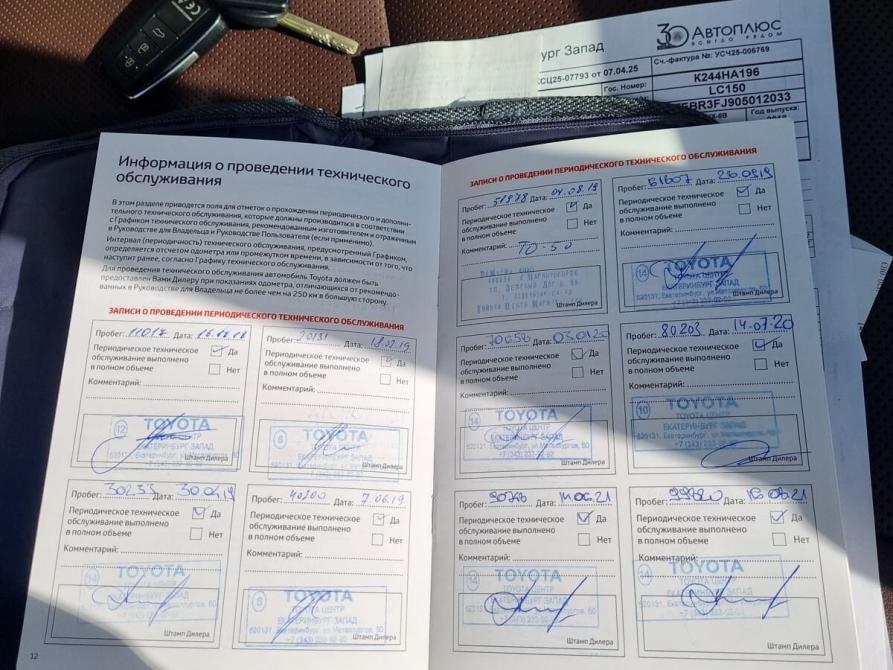 30 АВТОПЛЮС
ВСЕГДА РЯДОМ
Запад
Сч.-фактура №: УСЧ25-006769
КСЦ25-07793 от 07.04.25
Гос. Номер:
K244HA196
LC150
BR3FJ905012033
Год выпуска:
Информация о проведении технического
обслуживания
В этом разделе приводятся поля для отметок о прохождении периодического и дополни-
тельного технического обслуживания, которые должны производиться в соответствии
с Графиком технического обслуживания, рекомендованным изготовителем и отраженным
в Руководстве для Владельца и Руководстве Пользователя (если применимо).
Интервал (периодичность) технического обслуживания, предусмотренный Графиком,
определяется отсчетом одометра или промежутком времени, в зависимости от того, что
наступит ранее, согласно Графику технического обслуживания.
Для проведения технического обслуживания автомобиль Toyota должен быть
предоставлен Вами Дилеру при показаниях одометра, отличающихся от рекомендо-
ванных в Руководстве для Владельца не более чем на 250 км в большую сторону.
ЗАПИСИ О ПРОВЕДЕНИИ ПЕРИОДИЧЕСКОГО ТЕХНИЧЕСКОГО ОБСЛУЖИВАНИЯ
Пробег: Дата:
Периодическое техническое
обслуживание выполнено
в полном объеме
Да
Нет
Комментарий:
12
TOYOTA
ТОЙОТА ЦЕНТР
ЕКАТЕРИНБУРГ ЗАПАД
Штамп Дилера
Пробег: 20131 Дата:
Периодическое техническое
обслуживание выполнено
в полном объеме
Да
Нет
Комментарий:
6
TOYOTA
ТОЙОТА ЦЕНТР
ЕКАТЕРИНБУРГ ЗАПАД
Штамп Дилера
Пробег: 30233 Дата: 30.04.19
Периодическое техническое
обслуживание выполнено
в полном объеме
Да
Нет
Комментарий:
14
TOYOTA
Штамп Дилера
Пробег: 40200 Дата: 7.06.19
Периодическое техническое
обслуживание выполнено
в полном объеме
Да
Нет
Комментарий:
6
TOYOTA
ТОЙОТА ЦЕНТР
ЕКАТЕРИНБУРГ ЗАПАД
620131, Екатеринбург, ул.Металлургов, 60
+7 (343) 222-92-92
Штамп Дилера
12
ЗАПИСИ О ПРОВЕДЕНИИ ПЕРИОДИЧЕСКОГО ТЕХНИЧЕСКОГО ОБСЛУЖИВАНИЯ
Пробег: 51878 Дата: 04.08.19
Периодическое техническое
обслуживание выполнено
в полном объеме
Да
Нет
Комментарий: ТО-50
Штамп Дилера
Пробег: 61607 Дата: 26.09.19
Периодическое техническое
обслуживание выполнено
в полном объеме
Да
Нет
Комментарий:
14
TOYOTA
ТОЙОТА ЦЕНТР
ЕКАТЕРИНБУРГ ЗАПАД
Штамп Дилера
Пробег: 70056 Дата: 03.01.20
Периодическое техническое
обслуживание выполнено
в полном объеме
Да
Нет
Комментарий:
14
TOYOTA
ТОЙОТА ЦЕНТР
ЕКАТЕРИНБУРГ ЗАПАД
Штамп Дилера
Пробег: 80203 Дата: 14.07.20
Периодическое техническое
обслуживание выполнено
в полном объеме
Да
Нет
Комментарий:
10
TOYOTA
ТОЙОТА ЦЕНТР
ЕКАТЕРИНБУРГ ЗАПАД
Штамп Дилера
Пробег: Дата:
Периодическое техническое
обслуживание выполнено
в полном объеме
Да
Нет
Комментарий:
TOYOTA
ТОЙОТА ЦЕНТР
ЕКАТЕРИНБУРГ ЗАПАД
Штамп Дилера
Пробег: Дата:
Периодическое техническое
обслуживание выполнено
в полном объеме
Да
Нет
Комментарий:
14
TOYOTA
ТОЙОТА ЦЕНТР
ЕКАТЕРИНБУРГ ЗАПАД
Штамп Дилера